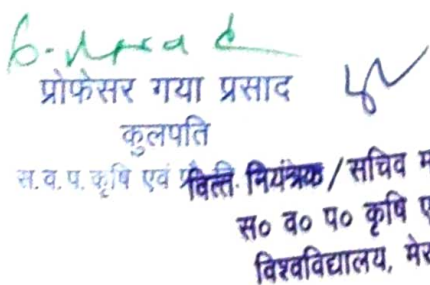 प्रोफेसर गया प्रसाद
कुलपति
स. व. प. कृषि एवं
वित्त नियंत्रक / सचिव
स० व० प० कृषि
विश्वविद्यालय,